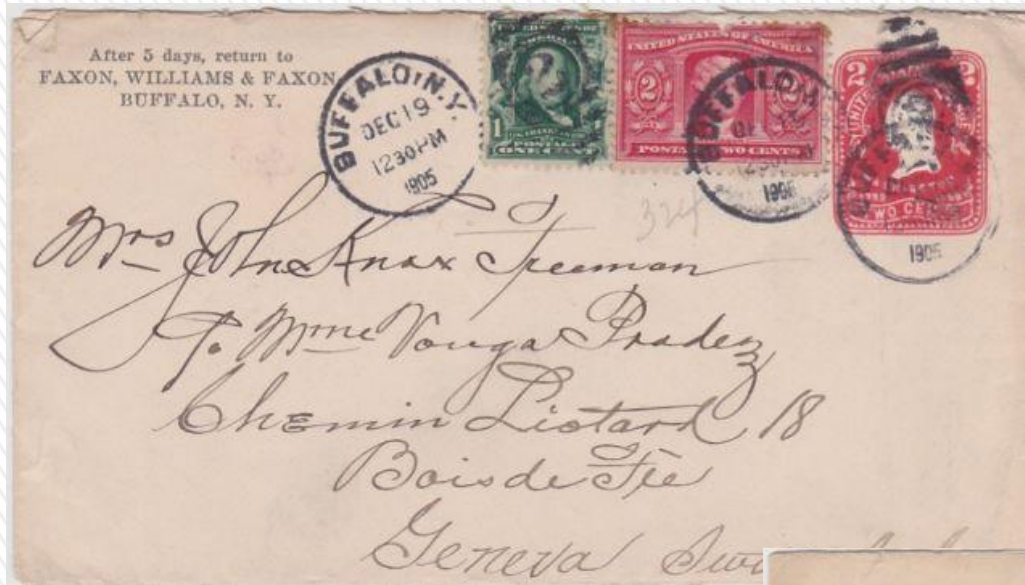 After 5 days, return to
FAXON, WILLIAMS & FAXON
BUFFALO, N. Y.
BUFFALO, N.Y.
DEC 19
1230 PM
1905
1
POSTAGE
ONE CENT
UNITED STATES OF AMERICA
2 2
POSTAGE TWO CENTS
BUFFALO, N
1905
2 2
UNITED
TWO CENTS
1905
324
Mrs John Knox Freeman
Mme Vouga Pradez
Chemin Liotard 18
Bois de Fée
Geneva